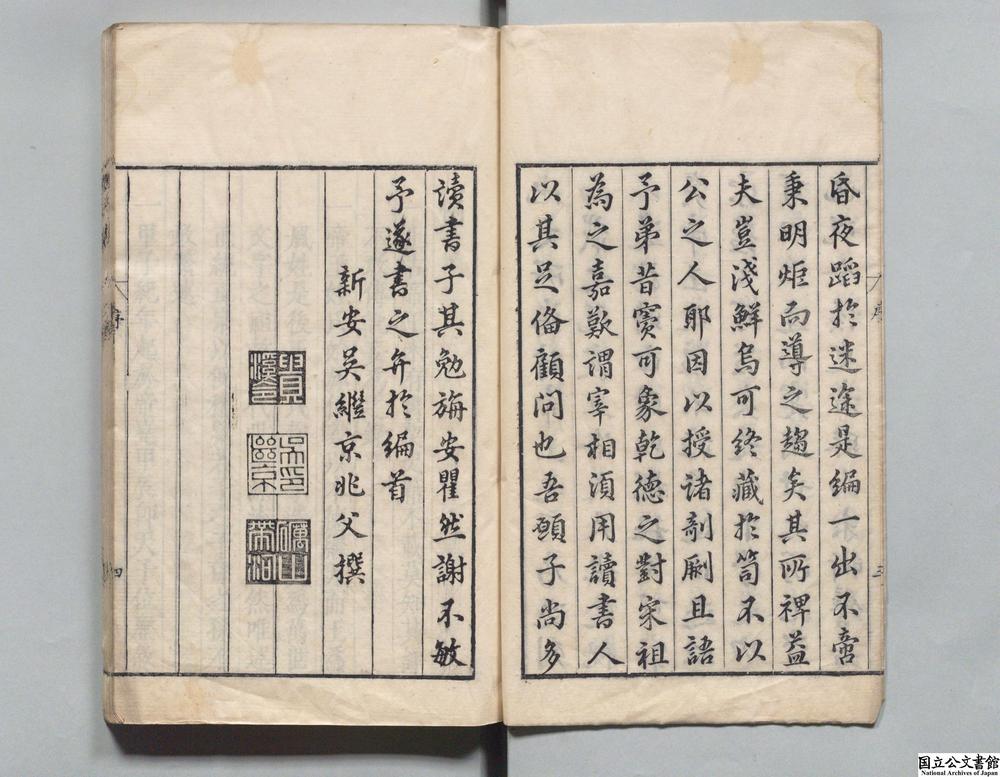 昏夜蹈於迷途是編一出不啻
秉明炬而導之趨矣其所裨益
夫豈淺鮮烏可終藏於笥不以
公之人耶因以授諸剞劂且語
予弟昔竇可象乾德之對宋祖
為之嘉歎謂宰相須用讀書人
以其足俻顧問也吾願子尚多
讀書子其勉旃安瞿然謝不敏
予遂書之弁於編首
新安吳繼京兆父撰
序
三
序
四
国立公文書館
National Archives of Japan